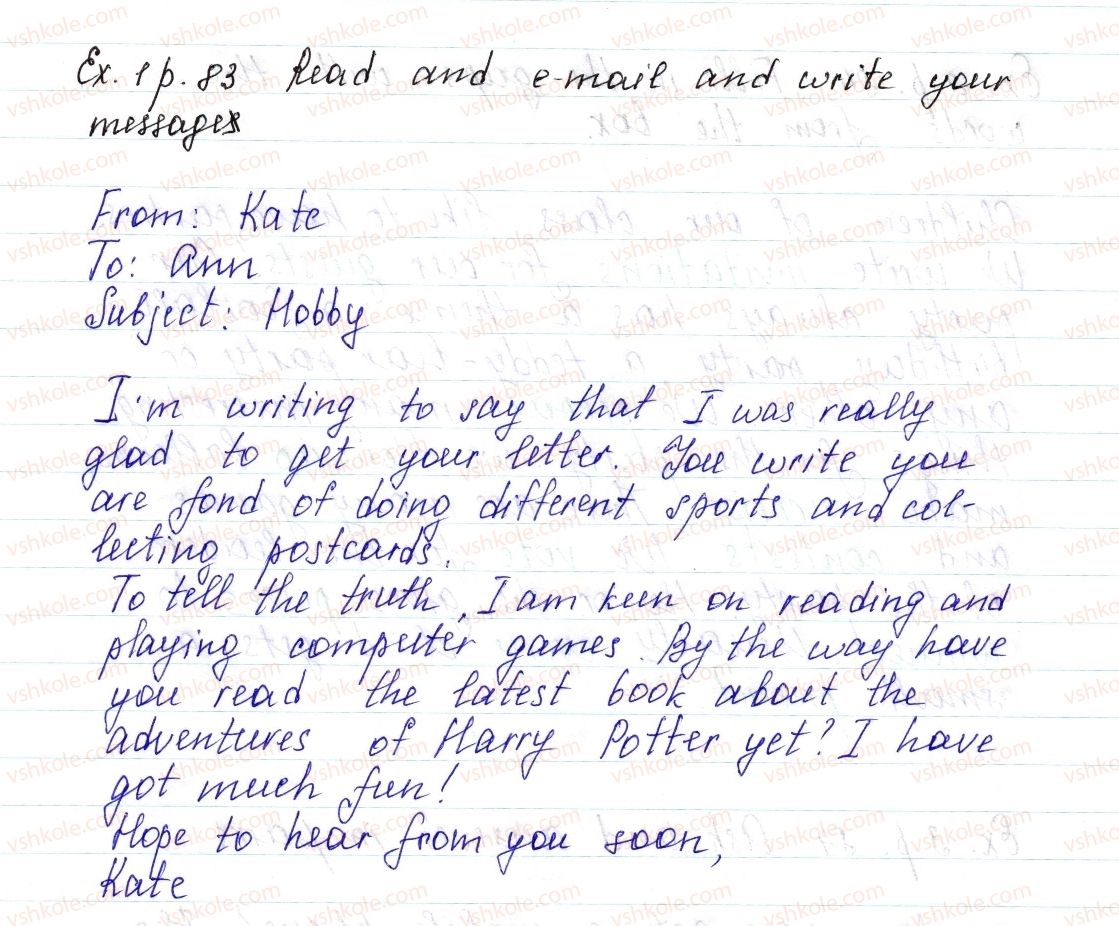 Ex. 1 p. 83 Read and e-mail and write your
messages
From: Kate
To: Ann
Subject: Hobby
I'm writing to say that I was really
glad to get your letter. You write you
are fond of doing different sports and col-
lecting postcards.
To tell the truth, I am keen on reading and
playing computer games. By the way have
you read the latest book about the
adventures of Harry Potter yet? I have
got much fun!
Hope to hear from you soon,
Kate